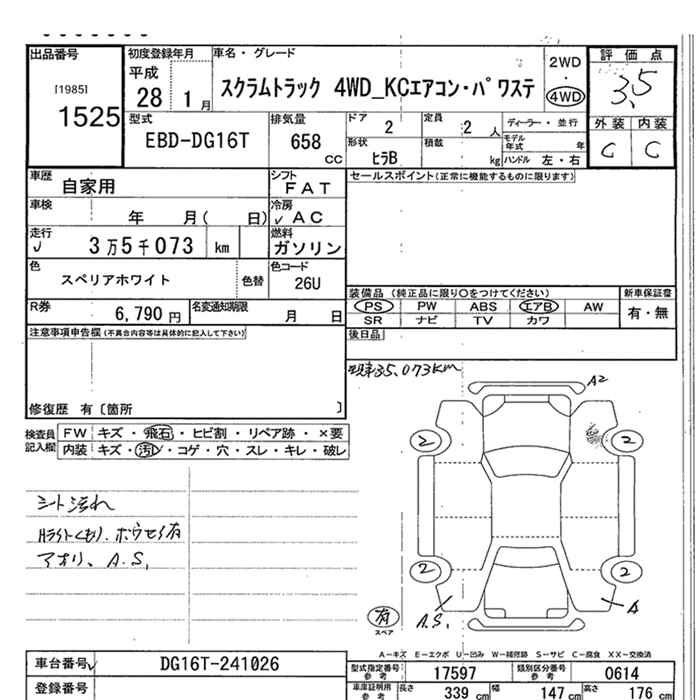 出品番号
[1985]
1525
初度登録年月
平成
28 1 月
車名・グレード
スクラムトラック 4WD_KCエアコン・パワステ
2WD
・
4WD
評価点
3.5
外装 内装
C C
型式
EBD-DG16T
排気量
658
CC
ドア
2
定員
2 人
ディーラー・並行
モデル年式 年
形状
ヒラB
積載
kg
ハンドル 左・右
車歴
自家用
シフト
FAT
車検
年 月( 日)
冷房
AC
走行
3万5千073 km
燃料
ガソリン
色
スペリアホワイト
色替
色コード
26U
R券
6,790 円
名変通知期限
月 日
セールスポイント(正常に機能するものに限ります)
装備品 (純正品に限り○をつけてください)
PS PW ABS エアB AW
SR ナビ TV カワ
新車保証書
有・無
後日品
注意事項申告欄(不具合内容等は具体的に記入して下さい)
修復歴 有〔箇所 〕
検査員
記入欄
FW キズ・飛石・ヒビ割・リペア跡・×要
内装 キズ・汚レ・コゲ・穴・スレ・キレ・破レ
シート汚れ
Hライトくもり.ホウセイ有
アオリ、A.S,
現車35,073km
A2
2
2
2
2
有
スペア
A.S,
A
A−キズ E−エクボ U−凹み W−補修跡 S−サビ C−腐食 XX−交換済
車台番号
DG16T-241026
登録番号
型式指定番号
参考
17597
類別区分番号
参考
0614
車庫証明用
参考
長さ 339 cm
幅 147 cm
高さ 176 cm